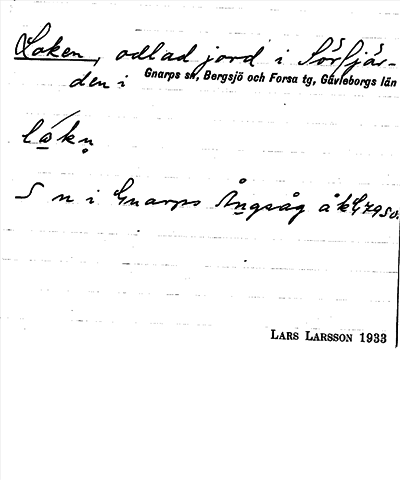 Loken, odlad jord i Sörfjär-
den i Gnarps sn, Bergsjö och Forsa tg, Gävleborgs län
S n i Gnarps Ångsåg åk
LARS LARSSON 1933